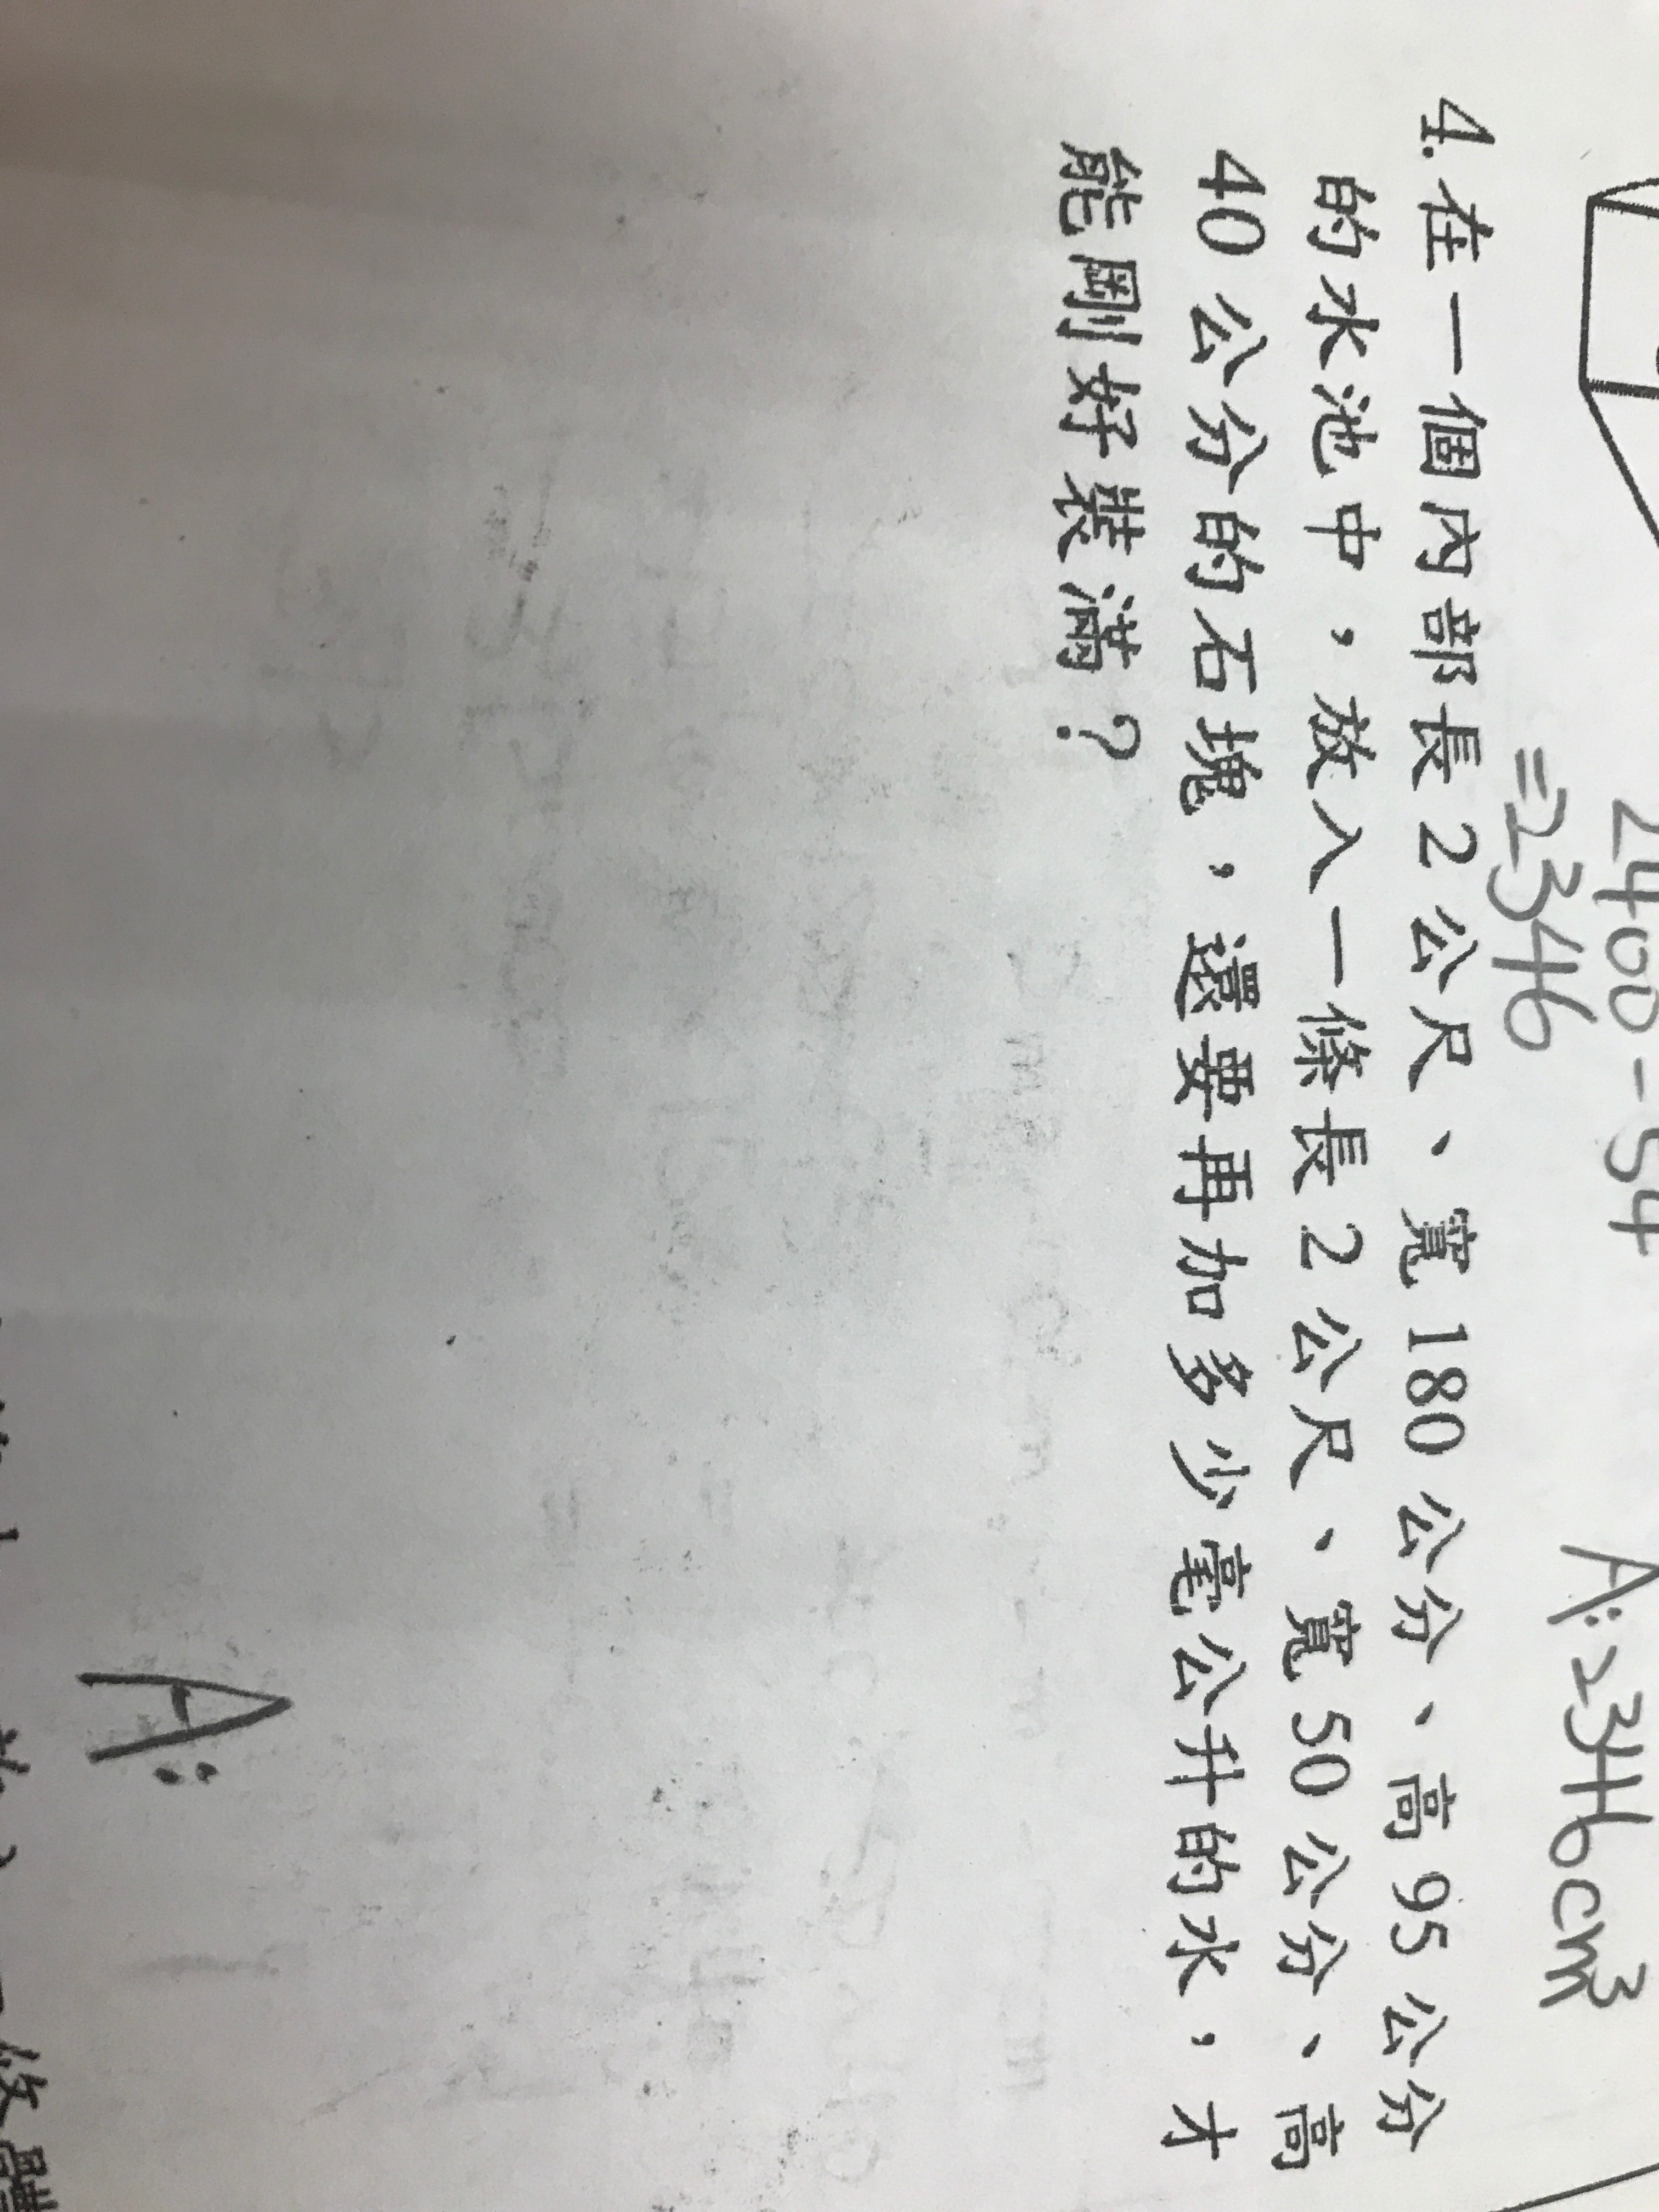 2400-54
=2346
A:2346cm³
4.在一個內部長2公尺、寬180公分、高95公分
的水池中，放入一條長2公尺、寬50公分、高
40公分的石塊，還要再加多少毫公升的水，才
能剛好裝滿？
A: